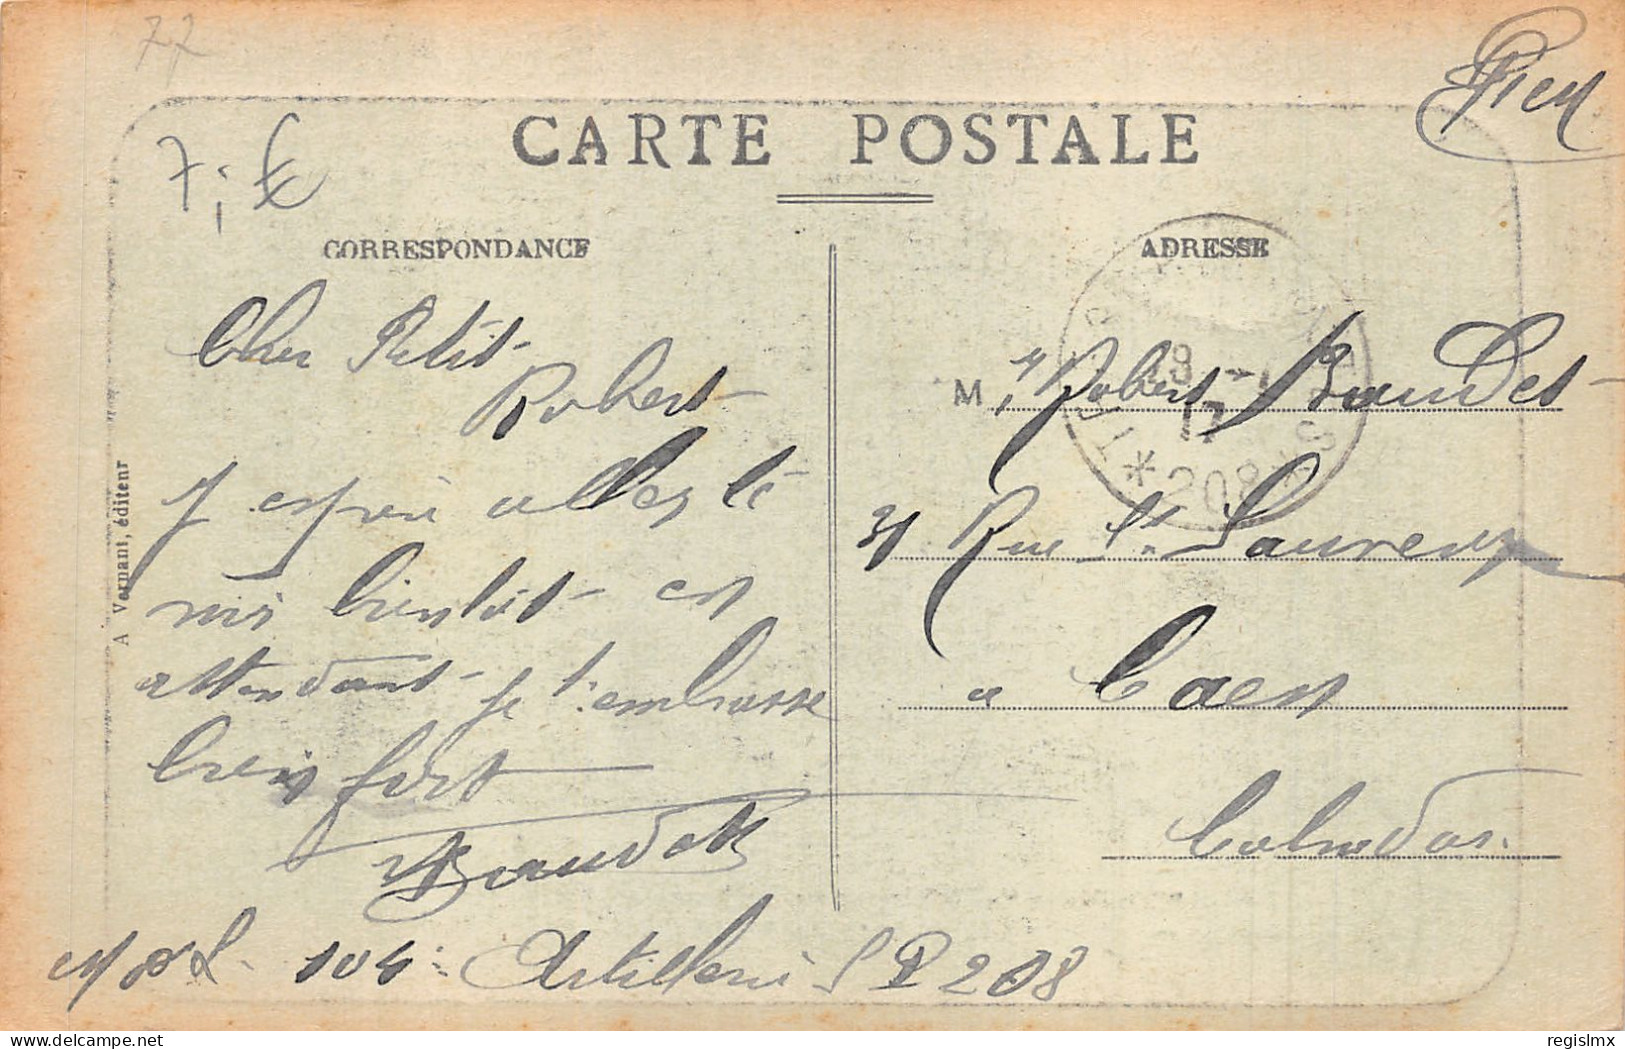 77
7,€
CARTE POSTALE
CORRESPONDANCE
Cher Petit
Robert
J espère aller te
voir bientôt en
attendant je t'embrasse
bien fort
Baudet
104e Artillerie S P 208
A Vernant, éditeur
ADRESSE
M. Robert Baudet
31 Rue St Laurent
a Caen
Calvados.
18 -1
17
*208*
regislmx